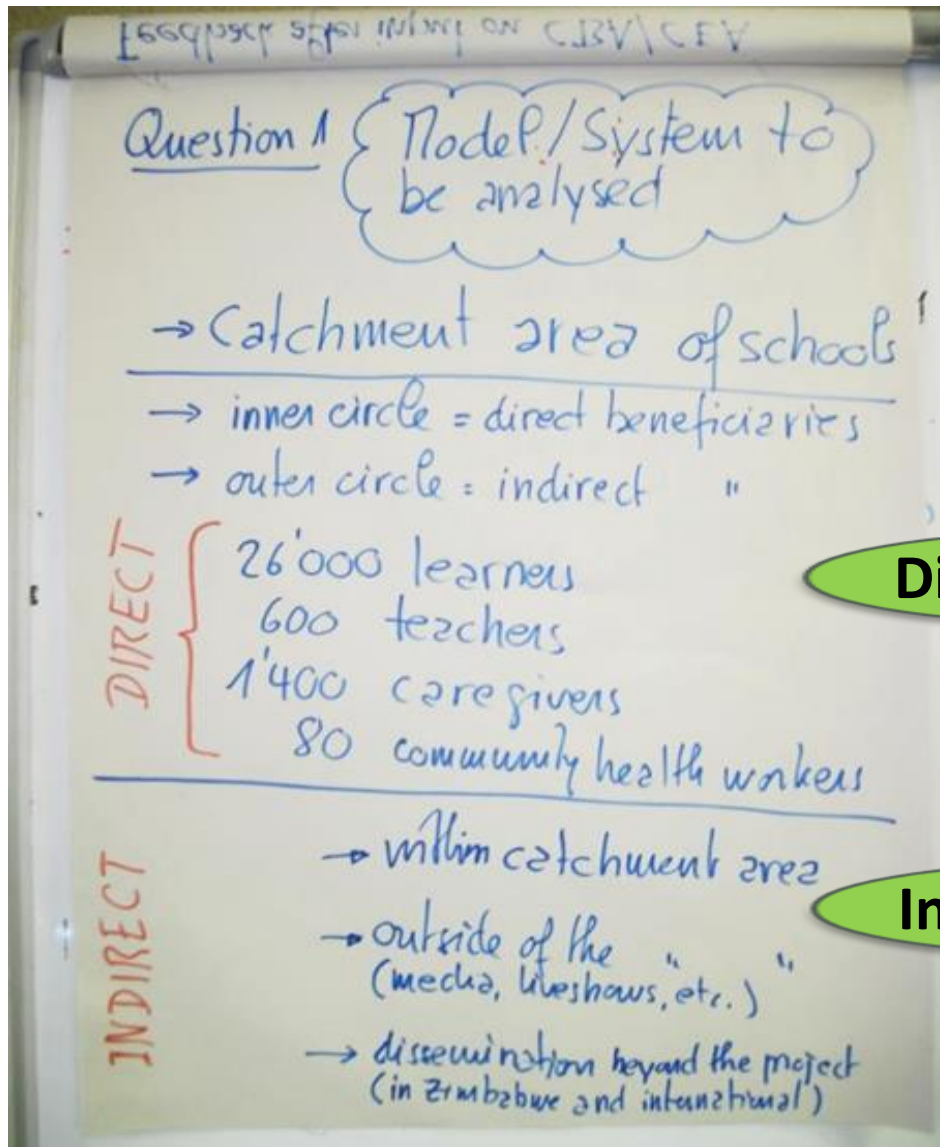 Feedback after input on CBA/CEA
Question 1
Model/System to
be analysed
→ Catchment area of schools
→ inner circle = direct beneficiaries
→ outer circle = indirect "
DIRECT
26'000 learners
600 teachers
1'400 caregivers
80 community health workers
Di
INDIRECT
→ within catchment area
→ outside of the " "
(media, liveshows, etc.)
In
→ dissemination beyond the project
(in Zimbabwe and international)